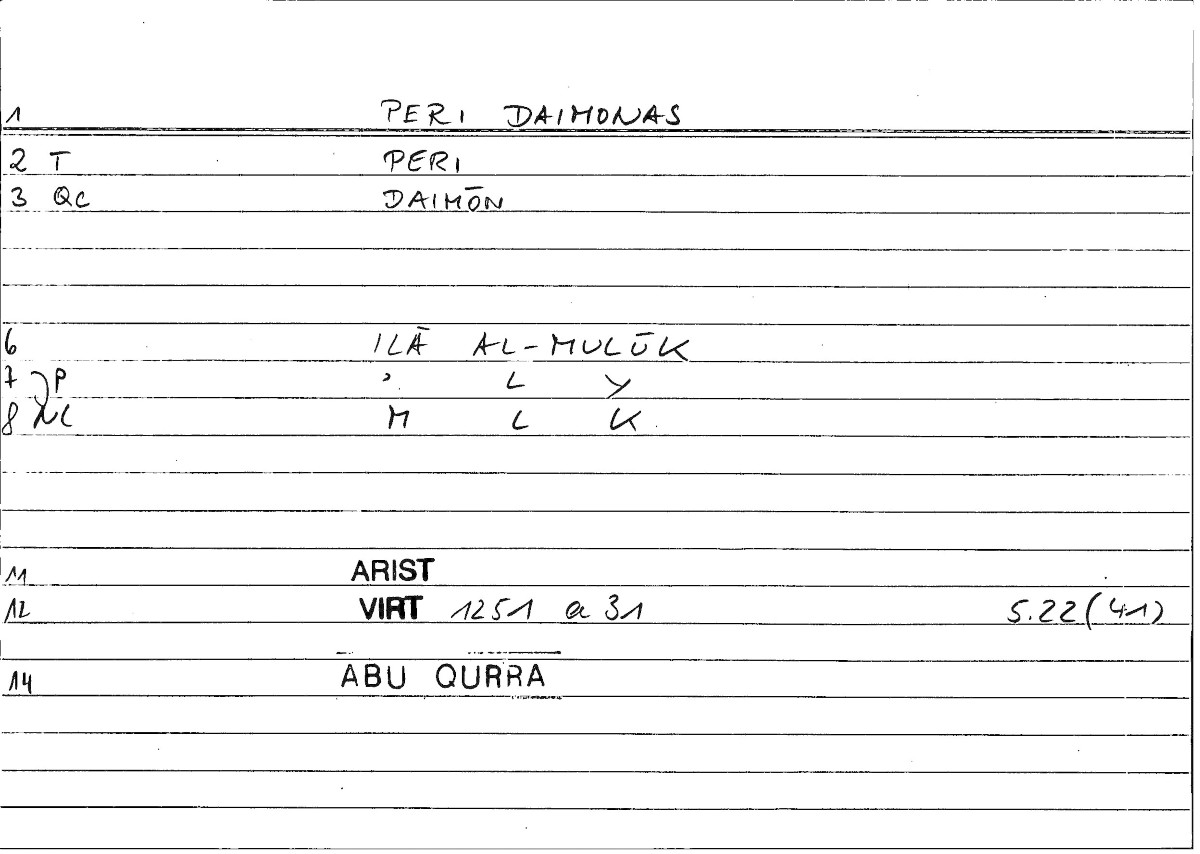 1 PERI DAIMONAS
2 T PERI
3 QC DAIMŌN
6 ILĀ AL-MULŪK
7 P ʾ L Y
8 NC M L K
11 ARIST
12 VIRT 1251 a 31 5.22(41)
14 ABU QURRA